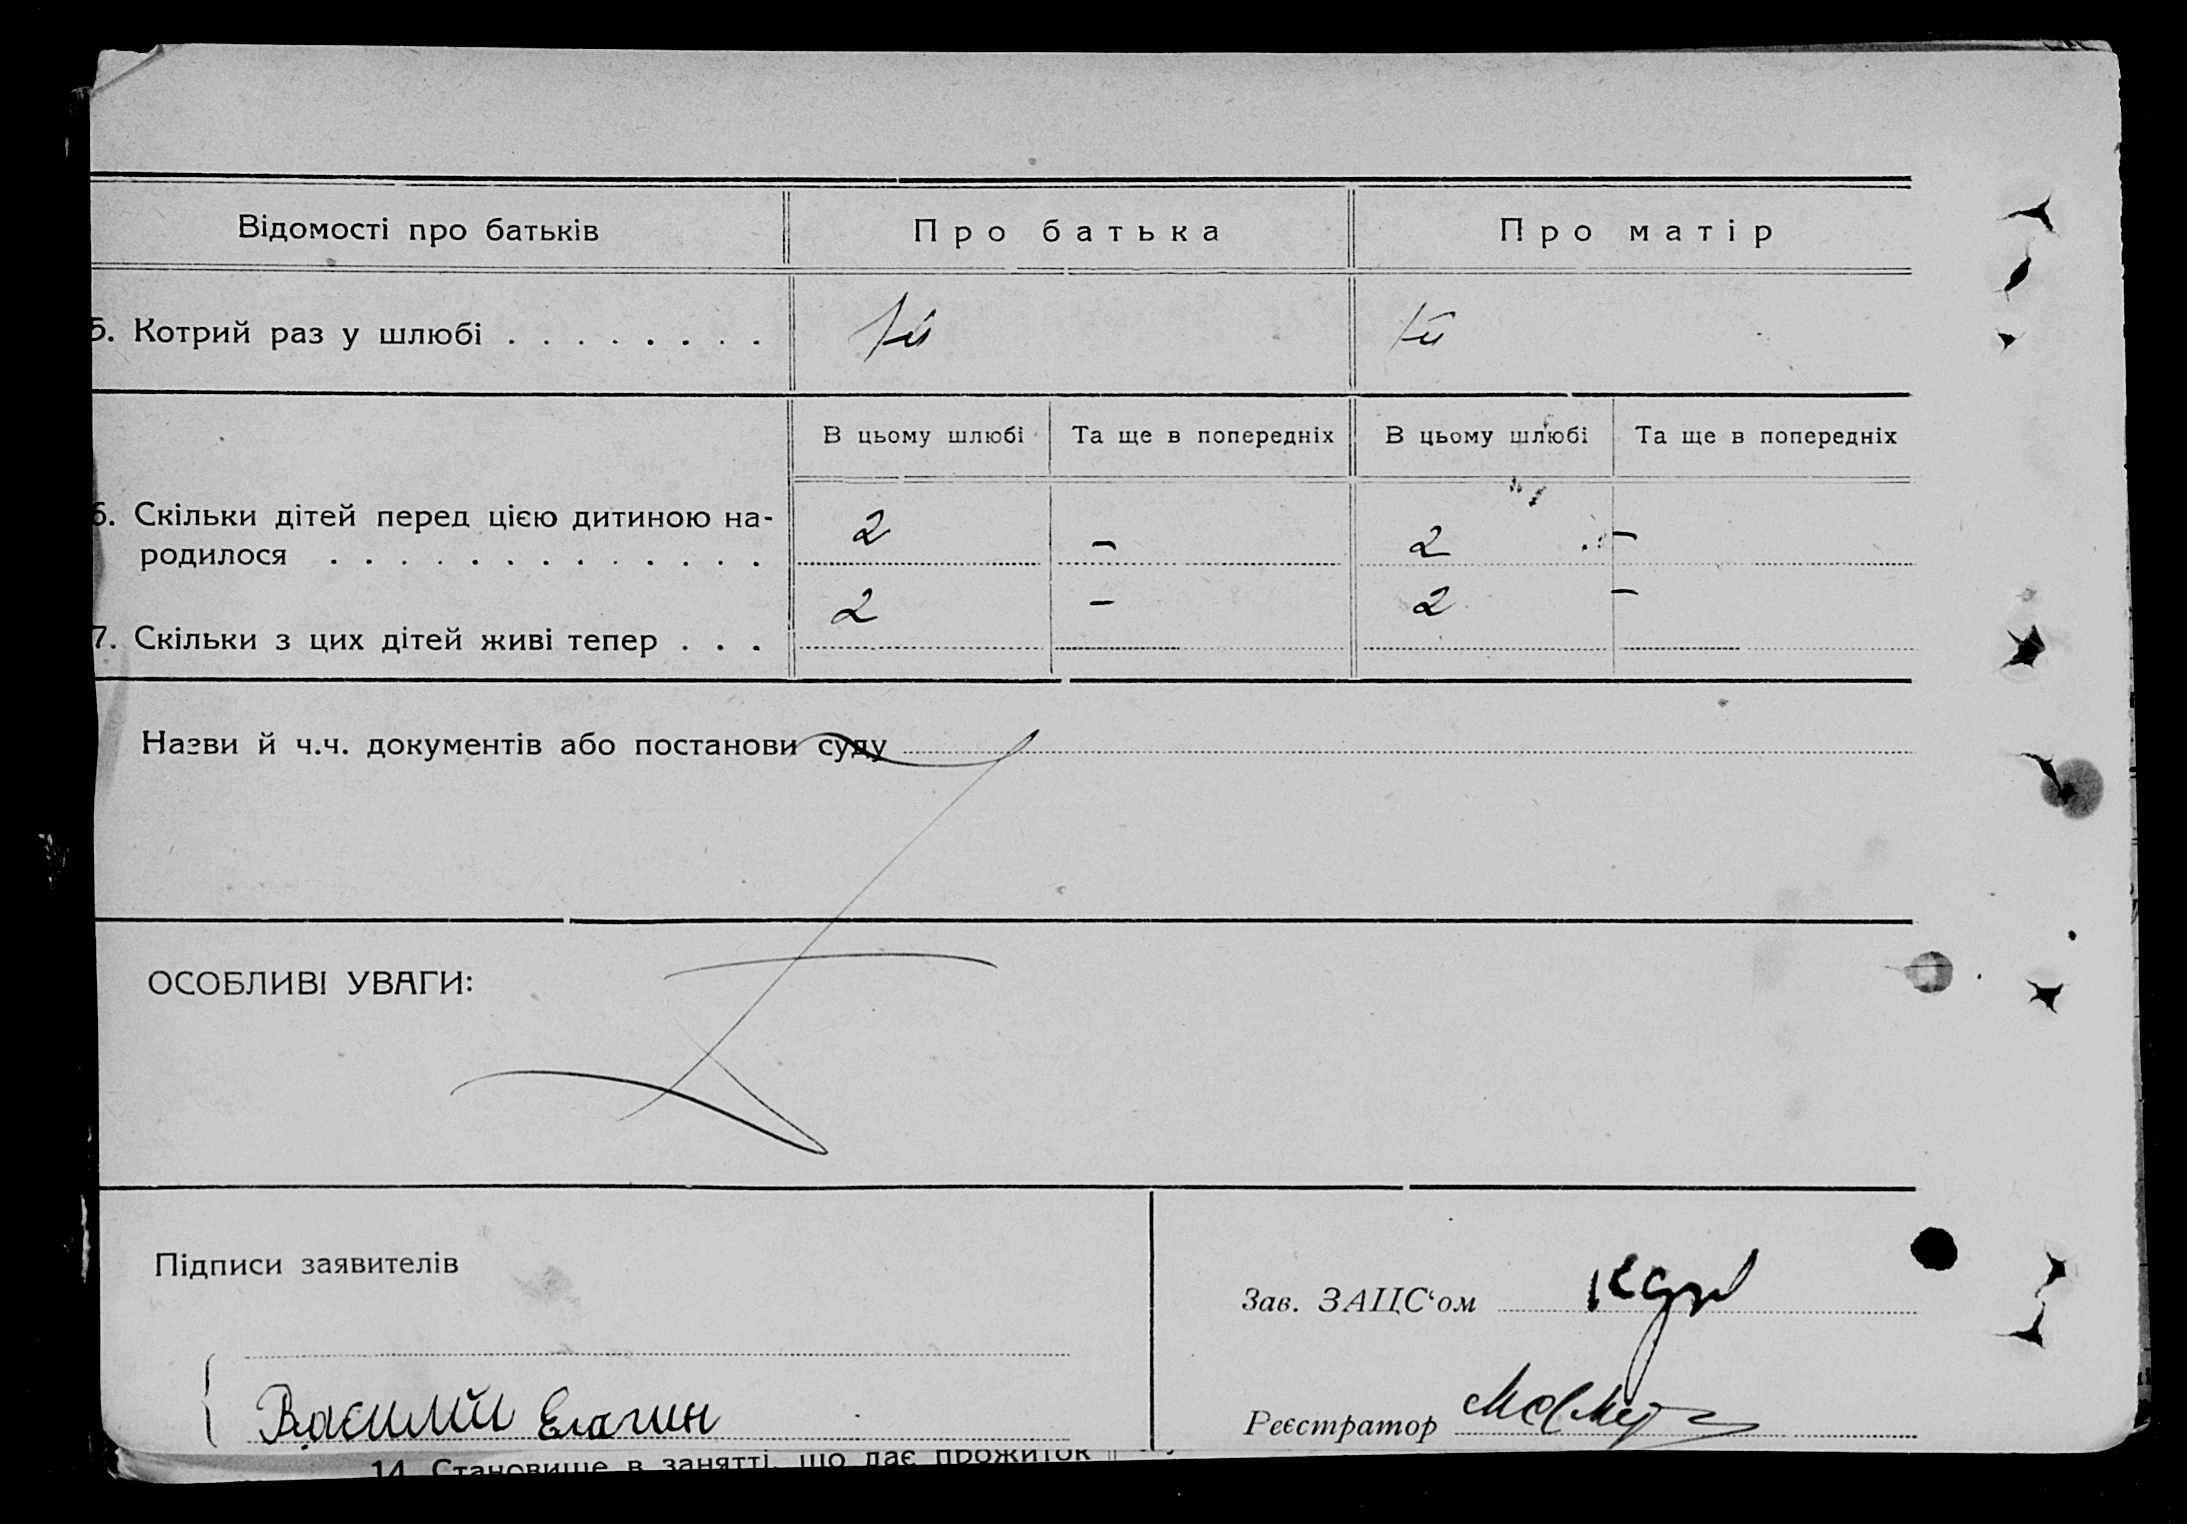 Відомості про батьків Про батька Про матір
5. Котрий раз у шлюбі . . . . . . . . 1й 1й
В цьому шлюбі Та ще в попередніх В цьому шлюбі Та ще в попередніх
6. Скільки дітей перед цією дитиною на-
родилося . . . . . . . . . . . . . 2 – 2 –
7. Скільки з цих дітей живі тепер . . . 2 – 2 –
Назви й ч.ч. документів або постанови суду
ОСОБЛИВІ УВАГИ:
Підписи заявителів
Зав. ЗАЦС‘ом
Василий Елагин
Реєстратор
14. Становище в занятті, що дає прожиток